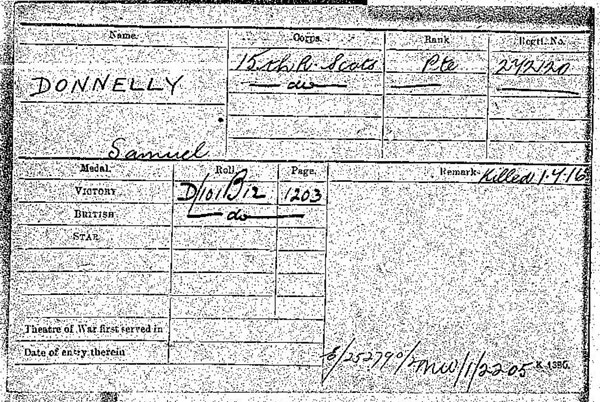 Name. Corps. Rank Regtl. No.
DONNELLY 15th R. Scots Pte 242120
do
Samuel
Medal. Roll. Page. Remarks Killed 1.7.16
VICTORY D/101 B12 1203
BRITISH do
STAR
Theatre of War first served in
Date of entry therein
K. 1380.